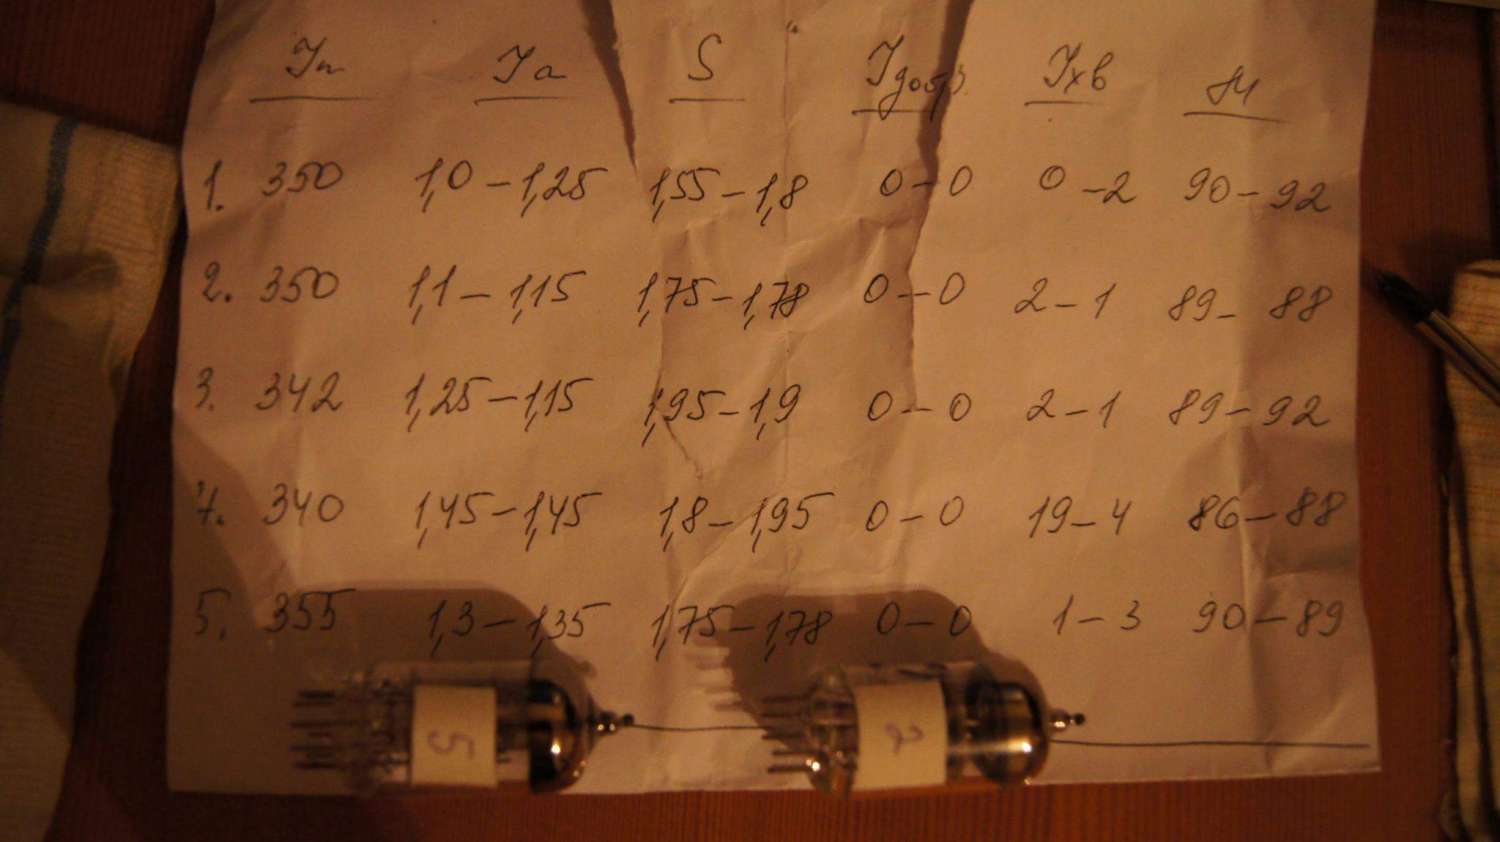 Iн Iа S Iдобр Iхв М
1. 350 1,0 – 1,25 1,55 – 1,8 0 – 0 0 – 2 90 – 92
2. 350 1,1 – 1,15 1,75 – 1,78 0 – 0 2 – 1 89 – 88
3. 342 1,25 – 1,15 1,95 – 1,9 0 – 0 2 – 1 89 – 92
4. 340 1,45 – 1,45 1,8 – 1,95 0 – 0 19 – 4 86 – 88
5. 355 1,3 – 1,35 1,75 – 1,78 0 – 0 1 – 3 90 – 89
5 2